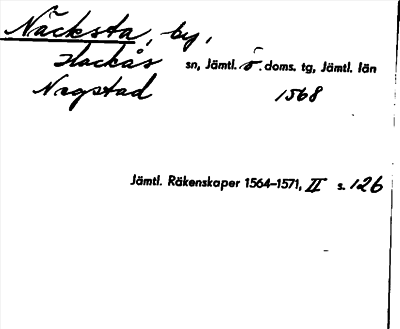 Näcksta, by,
Hackås sn, Jämtl. ö. doms. tg, Jämtl. län
Negstad 1568
Jämtl. Räkenskaper 1564–1571, II s. 126